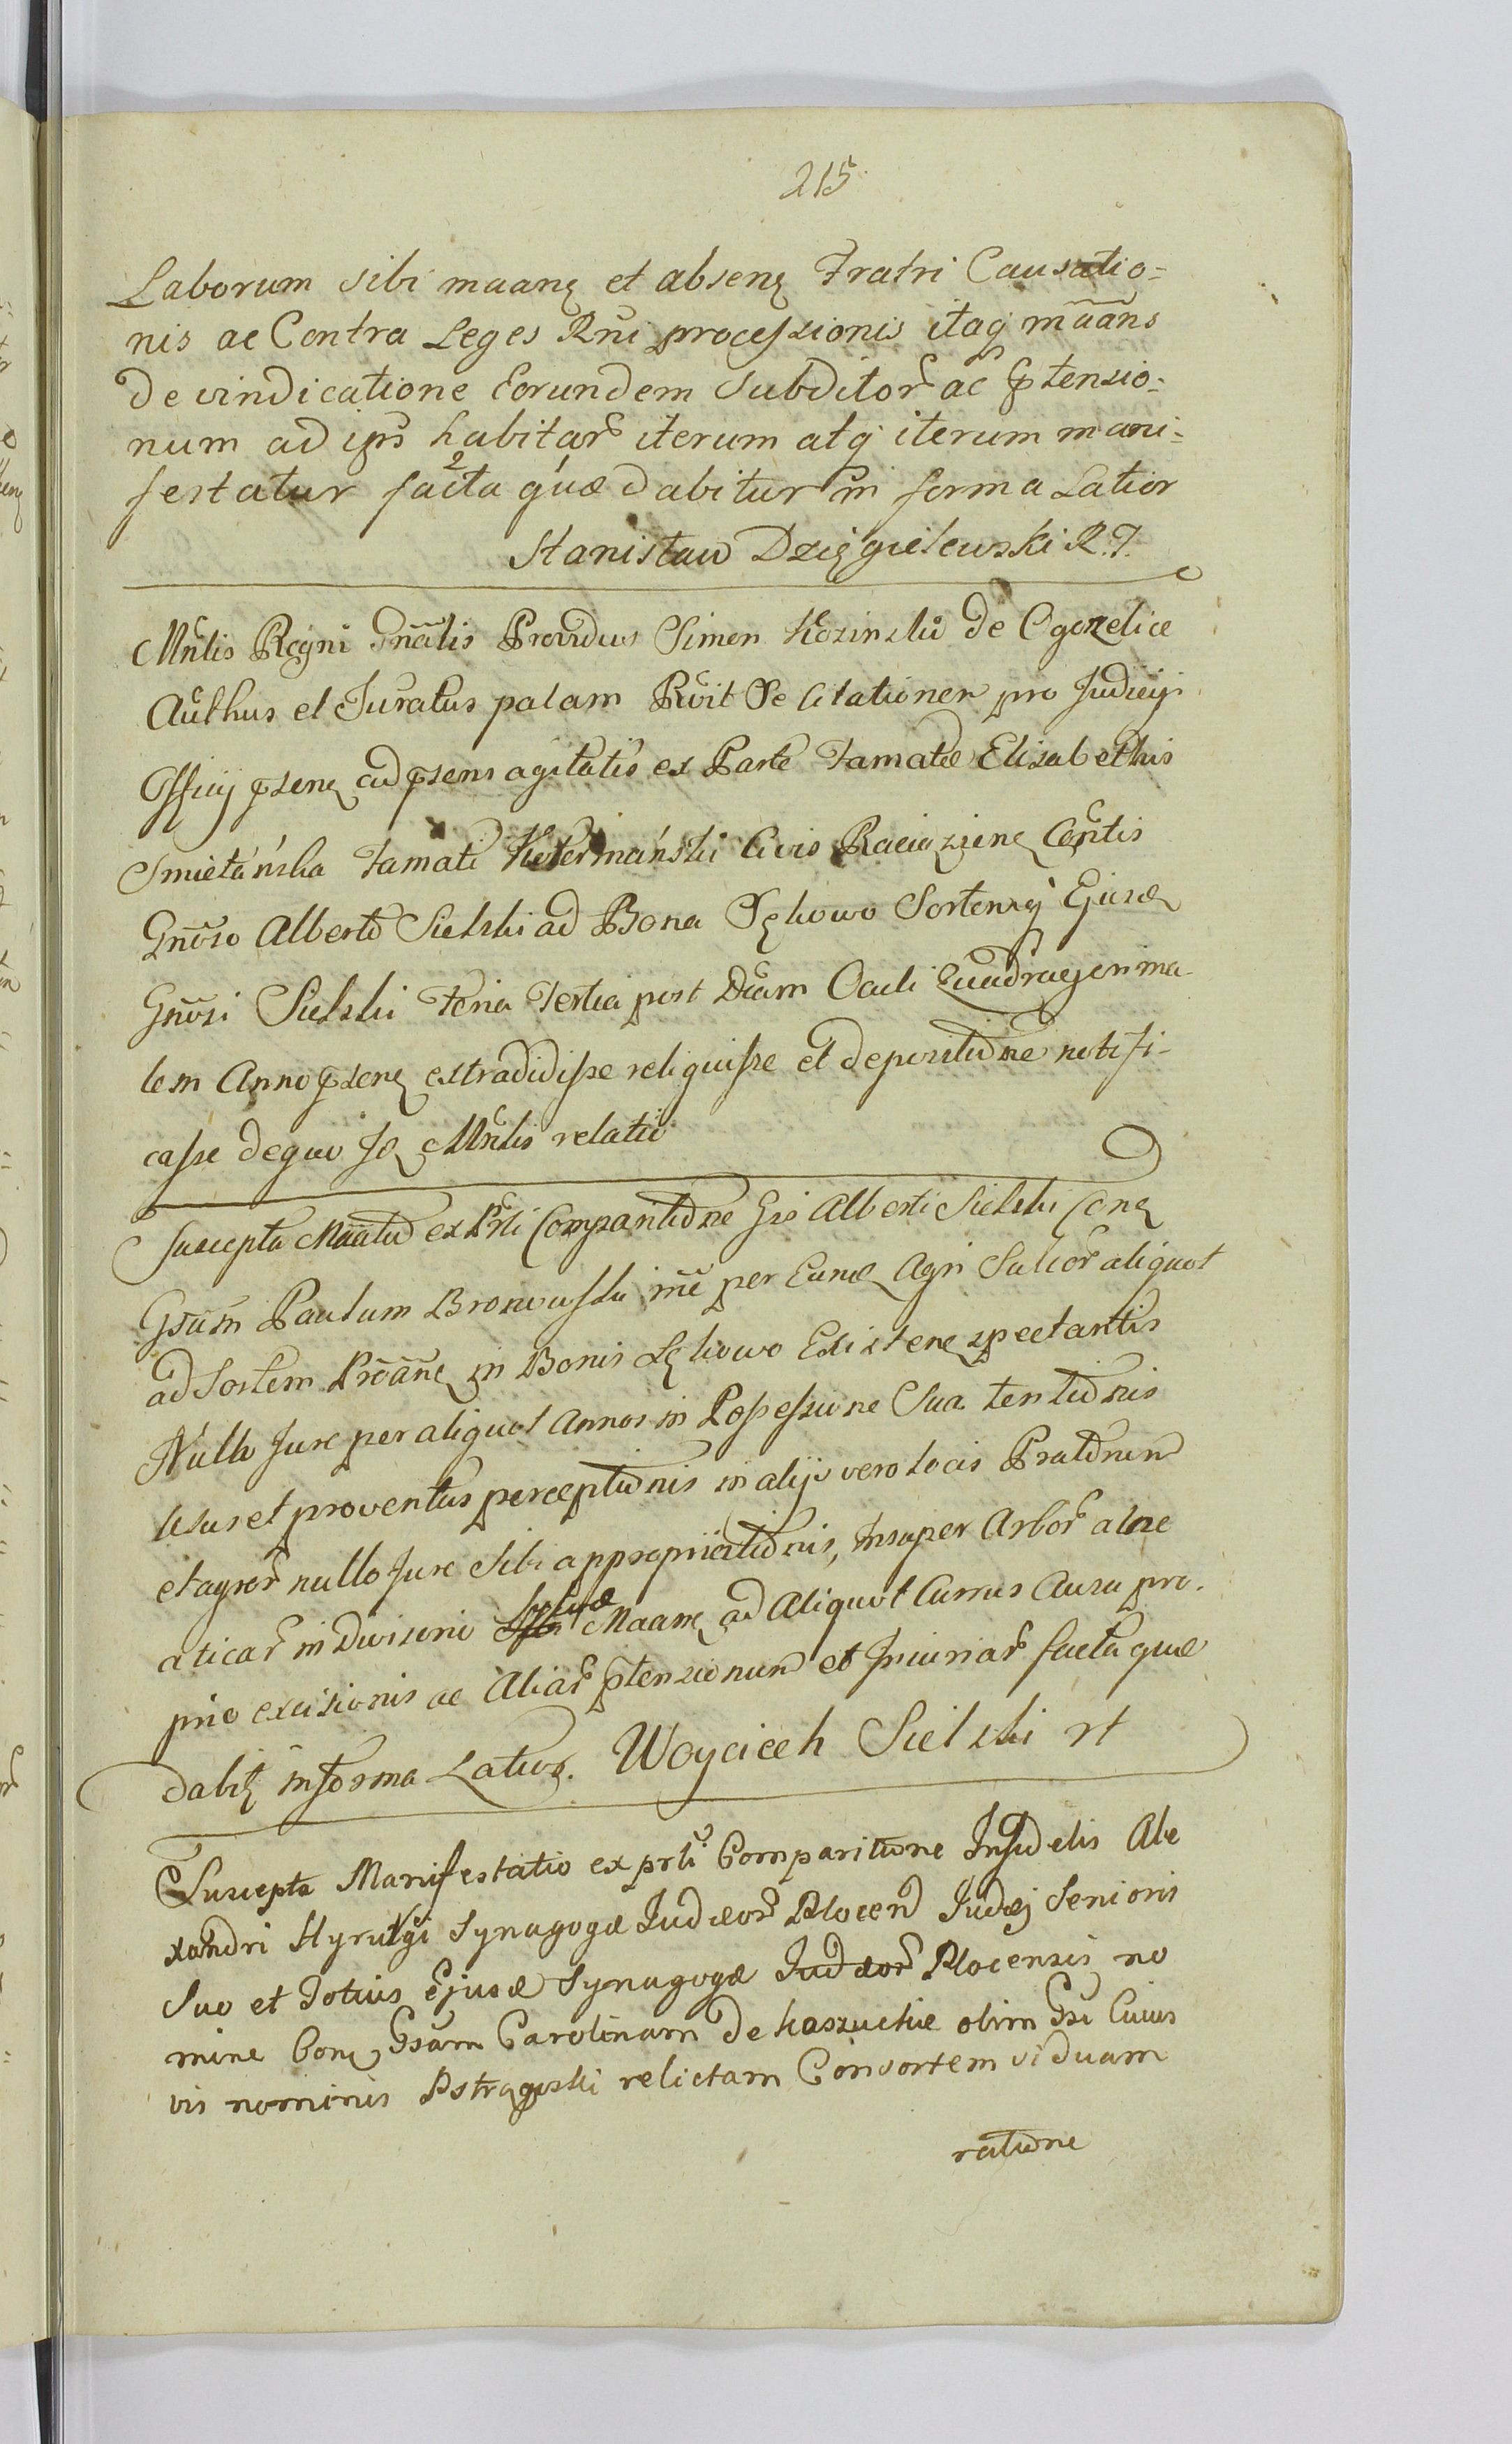 215
Laborum sibi maanę et absenę Fratri Causatio=
nis ac Contra Leges Rni processionis itaq mãans
de vindicatione Eorundem Subditor ac Ptensio=
num ad ips habitar iterum atq iterum mani=
festatur facta quæ dabitur in forma Latior
Stanisław Dzięgielewski R.T.
Mnlis Regni Gnãlis Providus Simon Kozinski de Ogonelice
Authus et Juratus palam Rvit Se Citationem pro Judicij
Officij psenę ad psens agitatis ex Parte Famatæ Elisabethis
Smietańska Famati Ketermański Civis Raciązienę Contis
Gnoso Alberto Sielski ad Bona Sękowo Sortemq Ejusdę
Gnosi Sielski Feria Tertia post Dcam Oculi Quadragesima-
lem Anno psenę extradidisse reliquisse et depositione notifi-
casse dequo Je Mnlis relatio
Suscepta Maatio ex Prli Comparitione Gsi Alberti Sielski Conę
Gsum Paulum Bromirski me per Eundę Agri Sulcor aliquot
ad Sortem Proãnę in Bonis Sękowo Existenę spectantis
Nullo Jure per aliquot Annos in Possessione Sua tentionis
Usus et proventus perceptionis in alijs vero locis Pratorum
et agror nullo Jure Sibi appropriationis, Insuper Arbor alne
aticar in Divisorio Sylvæ Maanę ad Aliquot Currus Ausu pro-
prio excisionis ac Aliar ptensionum et Injuriar facta quæ
dabit in forma Latior. Woyciech Sielski rt
Suscepta Manifestatio ex prli Comparitione Infidelis Ale
xandri Hyrurgi Synagogæ Judæor Plocen Judæj Senioris
Suo et Totius Ejusd Synagogæ Judæor Plocensis no
mine Conę Gsam Carolinam de Kaszuckie olim Gsi Cuius
vis nominis Pstrągoski relictam Consortem viduam
ratione